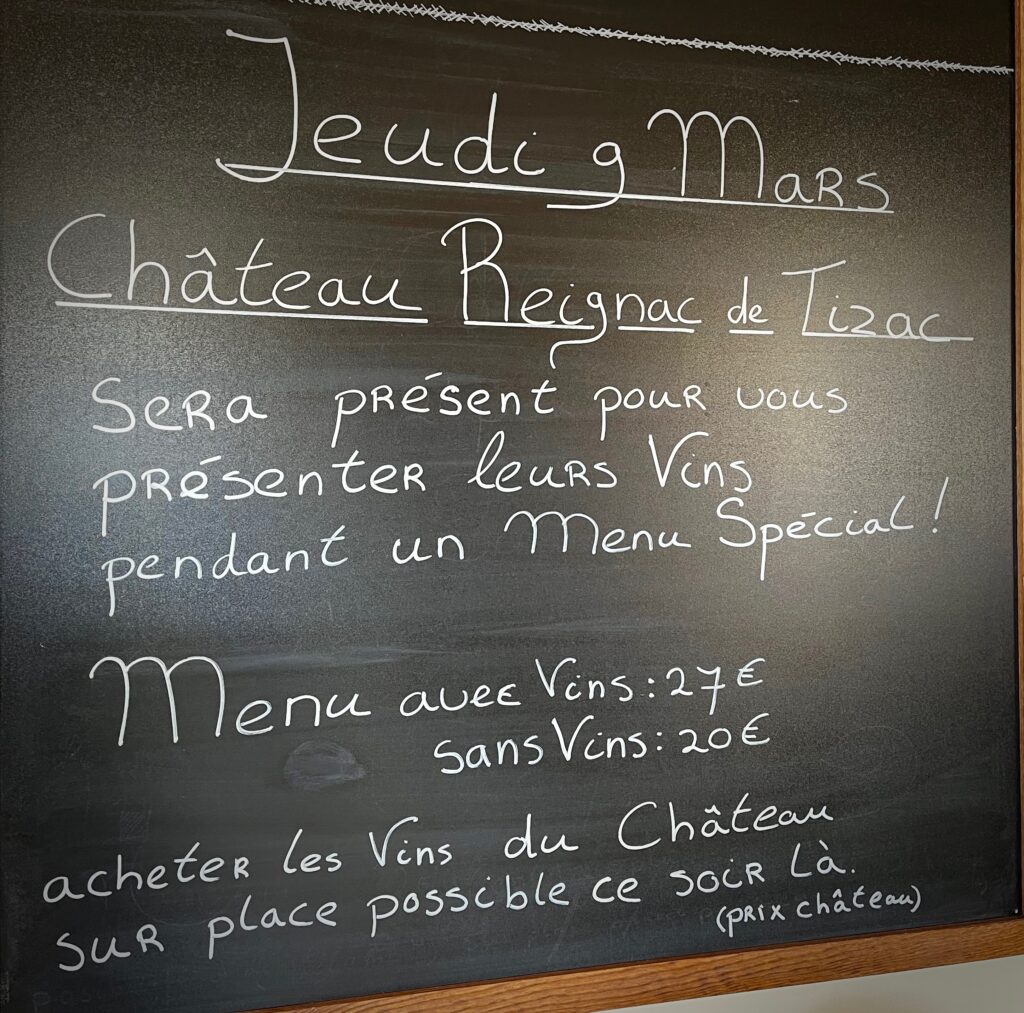 Jeudi 9 Mars
Château Reignac de Tizac
Sera présent pour vous
présenter leurs Vins
pendant un Menu Spécial !
Menu avec Vins : 27€
sans Vins : 20€
acheter les Vins du Château
sur place possible ce soir là.
(prix château)